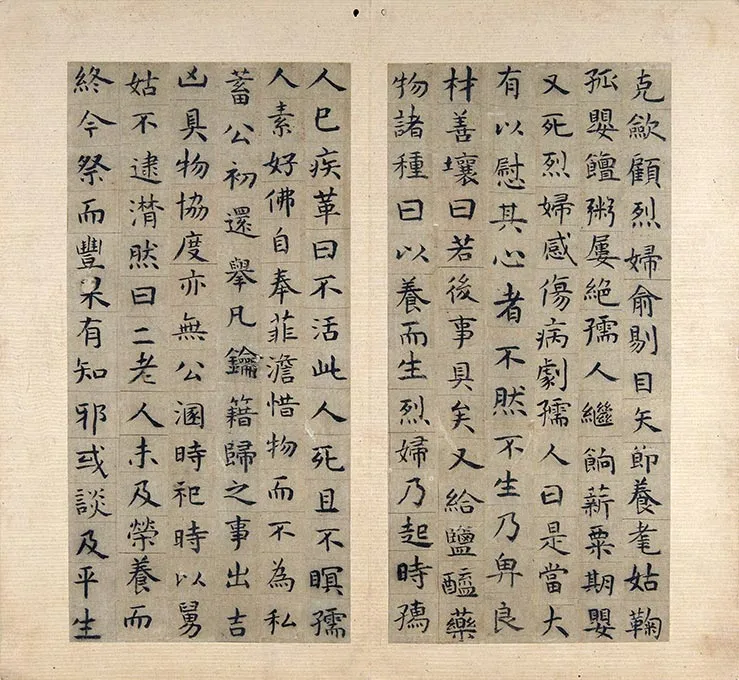 克歛顧烈婦俞剔目矢節養耄姑鞠
孤嬰饘粥屢絕孺人繼餉薪粟期嬰
又死烈婦感傷病劇孺人曰是當大
有以慰其心者不然不生乃畀良
材善壤曰若後事具矣又給鹽醯藥
物諸種曰以養而生烈婦乃起時孺
人已疾革曰不活此人死且不瞑孺
人素好佛自奉菲澹惜物而不為私
蓄公初還舉凡鑰籍歸之事出吉
凶具物協度亦無公溷時祀時以舅
姑不逮潸然曰二老人未及榮養而
終今祭而豐不有知邪或談及平生